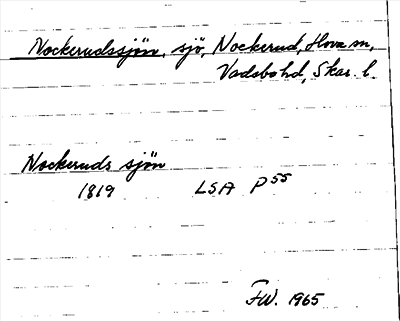 Nockerudssjön, sjö, Nockerud, Hova sn,
Vadsbo hd, Skar. l.
Nockeruds sjön
1819 LSA P55
FW. 1965